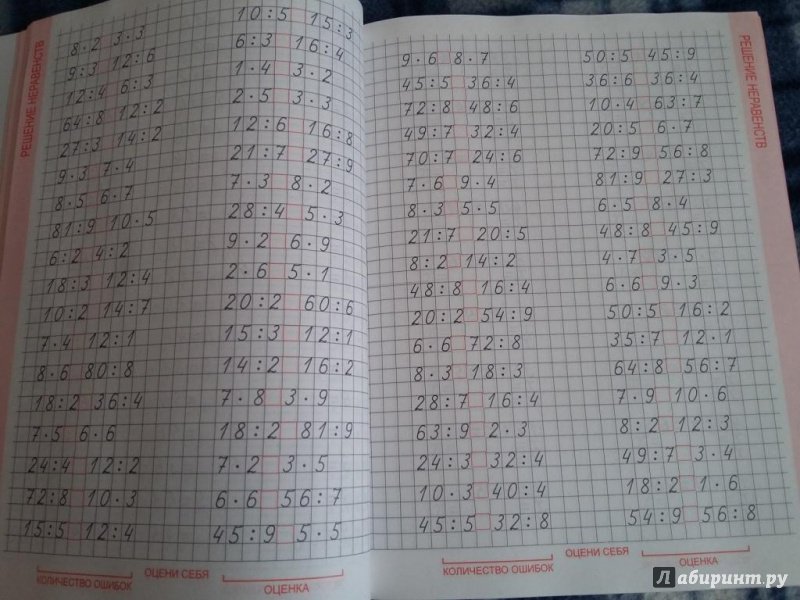 РЕШЕНИЕ НЕРАВЕНСТВ
8·2□3·3
9:3□12:6
12:4□6:3
64:8□12:2
27:3□14:2
9·3□7·4
8·5□6·7
81:9□10·5
6:2□4:2
18:3□12:4
10:2□14:7
7·4□12:1
8·6□80:8
18:2□36:4
7·5□6·6
24:4□12:2
72:8□10·3
15:5□12:4
10:5□15:3
6:3□16:4
1·4□3·2
2·5□3·3
12:6□16:8
21:7□27:9
7·3□8·2
28:4□5·3
9·2□6·9
2·6□5·1
20:2□60:6
15:3□12:1
14:2□16:2
7·8□3·9
18:2□81:9
7·2□3·5
6·6□56:7
45:9□5·5
КОЛИЧЕСТВО ОШИБОК
ОЦЕНИ СЕБЯ
ОЦЕНКА
9·6□8·7
45:5□36:4
72:8□48:6
49:7□32:4
70:7□24:6
7·6□9·4
8·3□5·5
21:7□20:5
8:2□14:2
48:8□16:4
20:2□54:9
6·6□72:8
8·3□18:3
28:7□16:4
63:9□2·3
24:3□32:4
10·3□40:4
45:5□32:8
50:5□45:9
36:6□36:4
10·4□63:7
20:5□6·7
72:9□56:8
81:9□27:3
6·5□8·4
48:8□45:9
4·7□3·5
6·6□9·3
50:5□16:2
35:7□12·1
64:8□56:7
7·9□10·6
8:2□12:3
49:7□3·4
18:2□1·6
54:9□56:8
РЕШЕНИЕ НЕРАВЕНСТВ
КОЛИЧЕСТВО ОШИБОК
ОЦЕНИ СЕБЯ
ОЦЕНКА
Лабиринт.ру